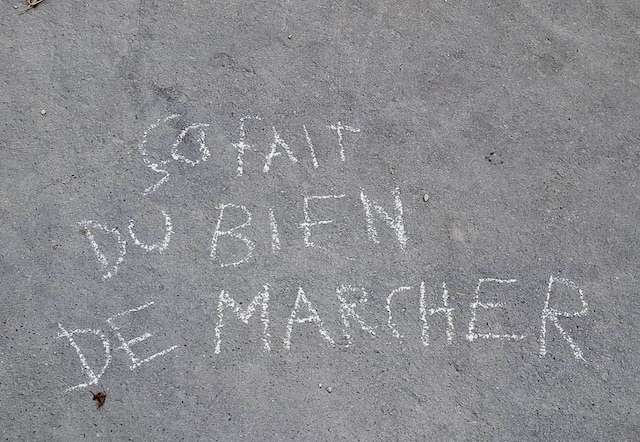 ça FAIT
DU BIEN
DE MARCHER